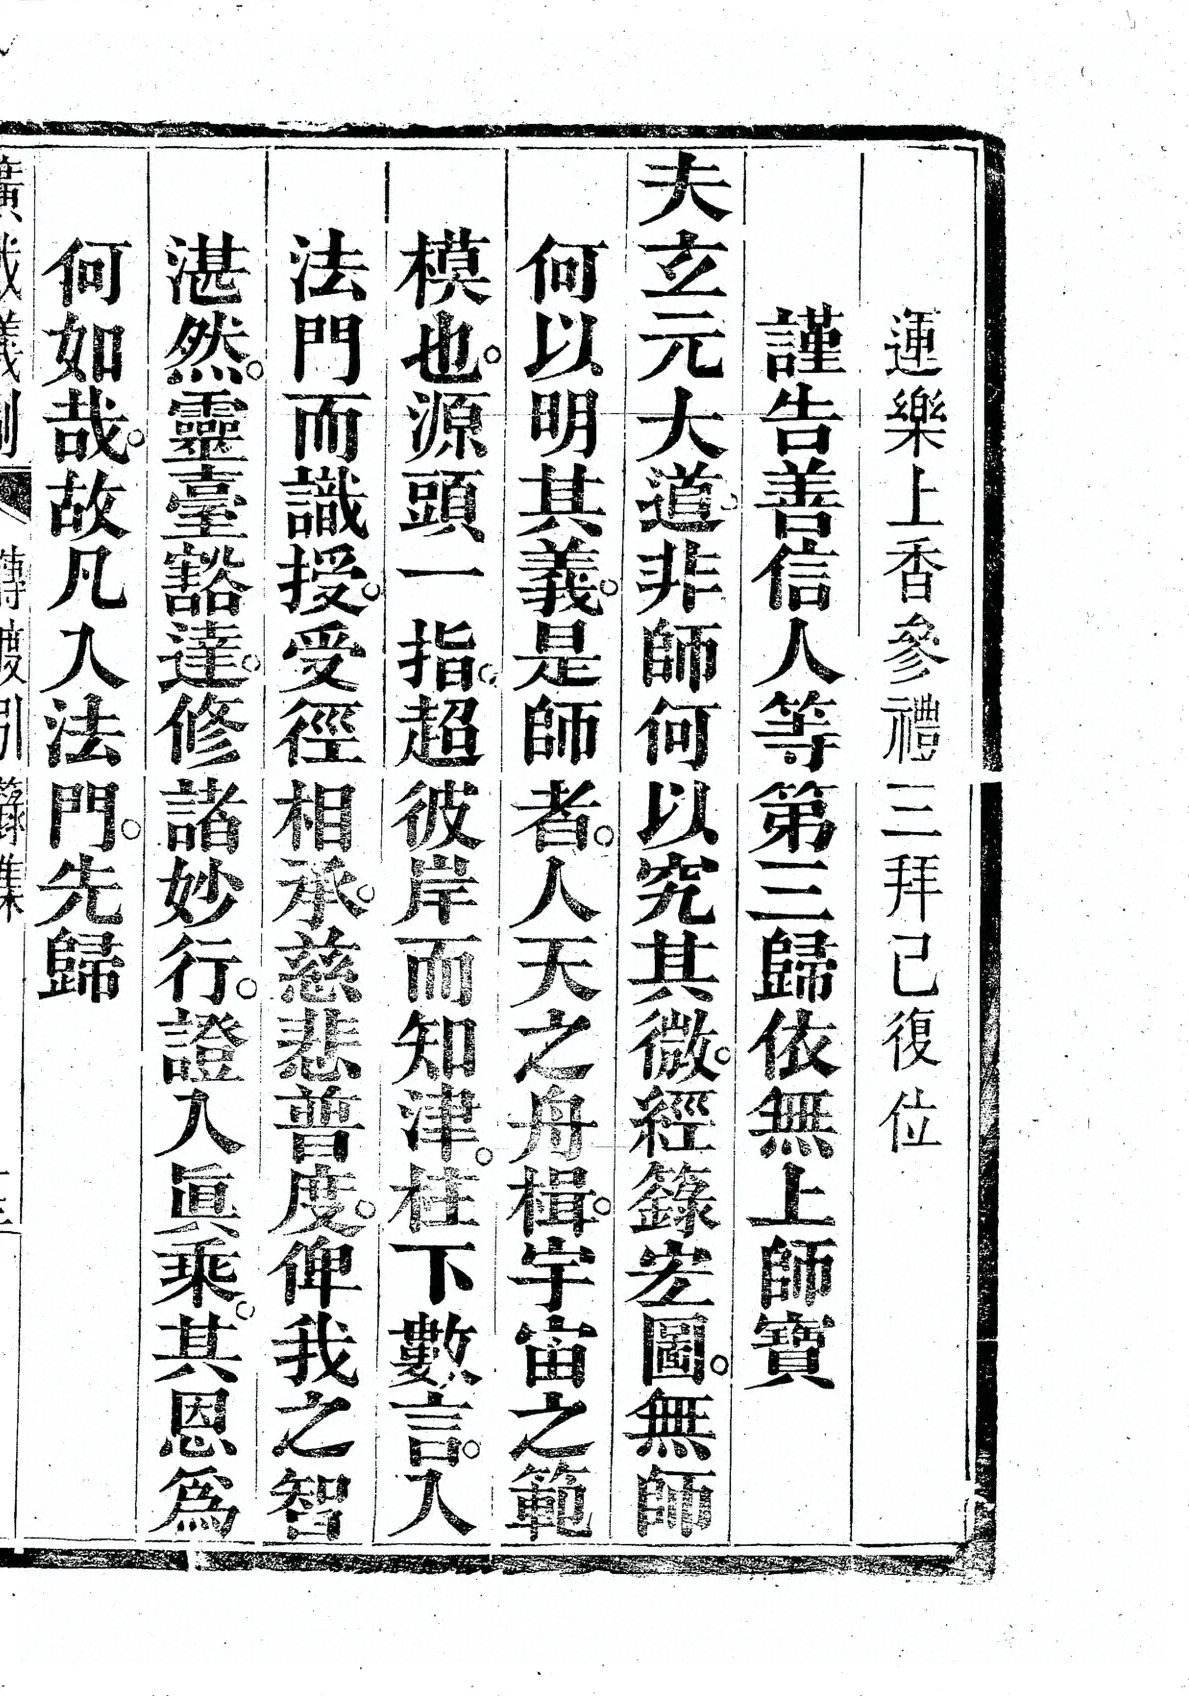 運樂上香參禮三拜己復位
謹告善信人等第三歸依無上師寶
夫玄元大道。非師何以究其微。經籙宏圖。無師
何以明其義。是師者。人天之舟楫。宇宙之範
模也。源頭一指。超彼岸而知津。柱下數言。入
法門而識授。受徑相承。慈悲普度。俾我之智
湛然。靈臺豁達。修諸妙行。證入眞乘。其恩爲
何如哉。故凡入法門。先歸
廣成儀制 傳度引籙集 十三